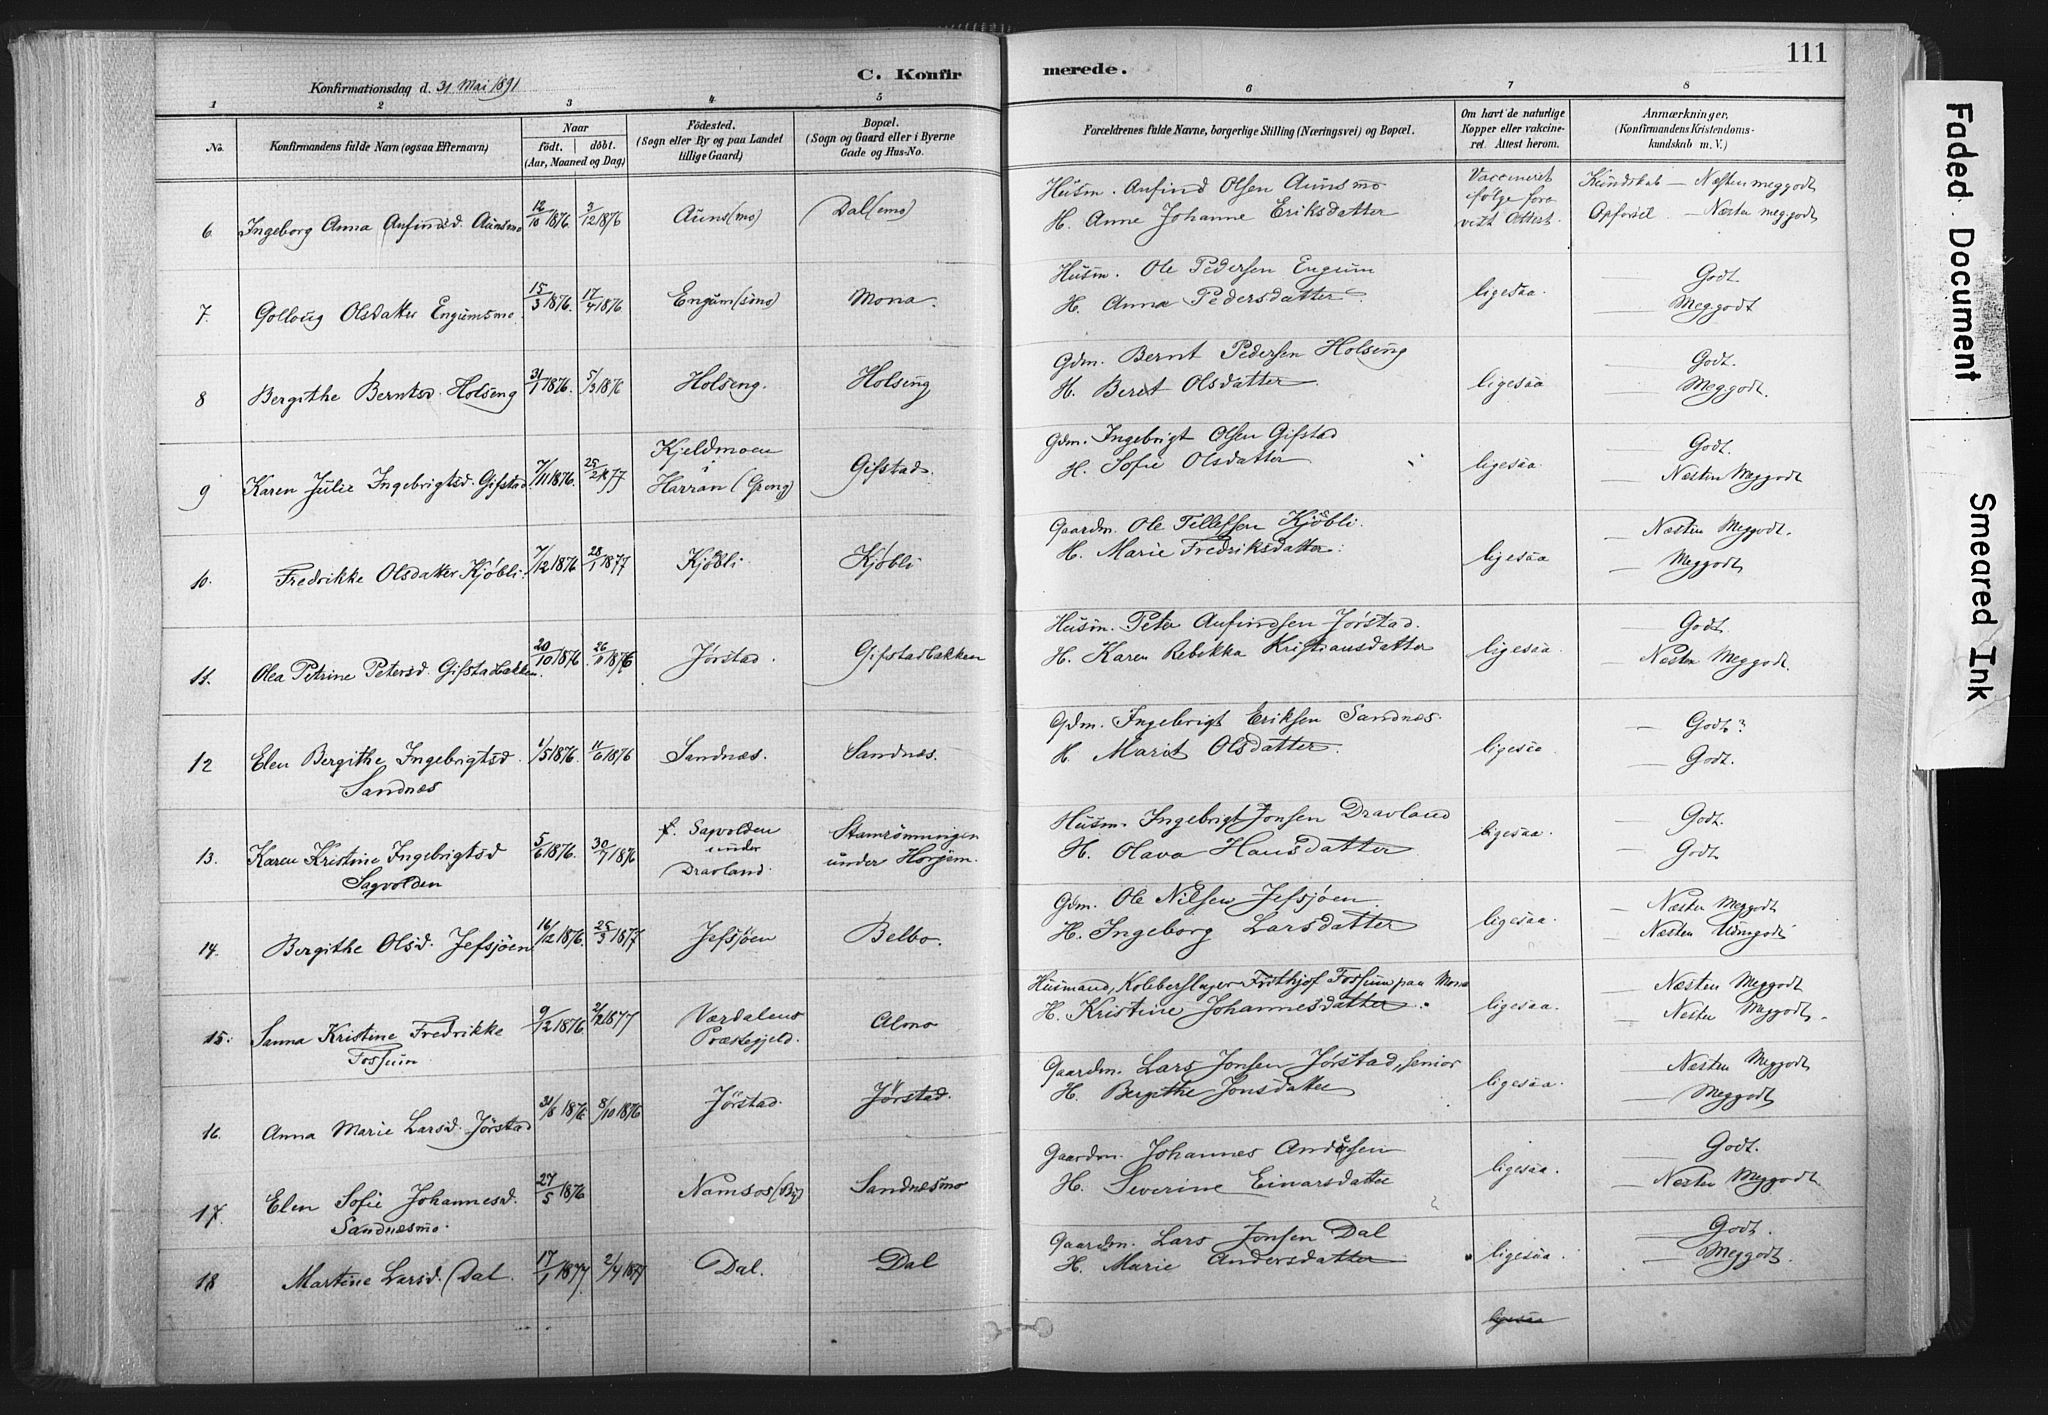 111
C. Konfirmerede.
Konfirmationsdag d. 31 Mai 1891
1 2 3 4 5 6 7 8
No.
Konfirmandens fulde Navn (ogsaa Efternavn)
Naar
født. døbt.
(Aar, Maaned og Dag)
Fødested.
(Sogn eller By og paa Landet
tillige Gaard)
Bopæl.
(Sogn og Gaard eller i Byerne
Gade og Hus-No.
Forældrenes fulde Navne, borgerlige Stilling (Næringsvei) og Bopæl.
Om havt de naturlige
Kopper eller vakcine-
ret. Attest herom.
Anmærkninger,
(Konfirmandens Kristendoms-
kundskab m. V.)
6. Ingeborg Anna Anfindsd. Aunsmo 12/10 1876. 3/12 1876 Auns(mo) Dal(emo)
Husm. Anfind Olsen Aunsmo
H. Anne Johanne Eriksdatter
Vaccineret
ifølge fore
vist Attest.
Kundskab — Næsten meggodt
Opførsel — Næsten meggodt
7. Gollaug Olsdatter Engumsmo. 15/3 1876. 17/4 1876. Engum(smo) Mona.
Husm. Ole Pedersen Engum
H. Anna Pedersdatter
ligesaa.
— Godt.
— Meggodt
8 Bergithe Berntsd. Holseng 31/1 1876. 5/3 1876 Holseng. Holseng
Gdm. Bernt Pedersen Holseng
H. Berit Olsdatter
ligesaa
— Godt.
— Meggodt.
9 Karen Julie Ingebrigtsd. Gifstad. 7/11 1876. 25/2 77 Kjeldmoen
i
Harran (Grong) Gifstad.
Gdm. Ingebrigt Olsen Gifstad
H. Sofie Olsdatter
ligesaa.
— Godt.
— Næsten Meggodt
10. Fredrikke Olsdatter Kjøbli. 7/12 1876 28/1 1877 Kjøbli. Kjøbli
Gaardm. Ole Tellefsen Kjøbli.
H. Marie Fredriksdatter.
ligesaa
— Næsten Meggodt.
— Meggodt
11. Olea Petrine Petersd. Gifstadbakken. 20/10 1876. 26/11 1876 Jørstad. Gifstadbakken
Husm. Peter Anfindsen Jørstad.
H. Karen Rebekka Kristiansdatter
ligesaa.
— Godt.
— Næsten Meggodt.
12 Elen Bergithe Ingebrigtsd.
Sandnæs
1/5 1876. 11/6 1876 Sandnæs. Sandnæs.
Gdm. Ingebrigt Eriksen Sandnæs.
H. Marit Olsdatter.
ligesaa.
— Godt?
— Godt.
13. Karen Kristine Ingebrigtsd
Sagvolden
5/6 1876. 30/7 1876 f. Sagvolden
under
Dravland.
Stamrønningen
under Horjem.
Husm. Ingebrigt Jonsen Dravland
H. Olava Hansdatter
ligesaa.
— Godt.
— Godt
14. Bergithe Olsd. Jefsjøen. 16/12 1876. 25/3 1877 Jefsjøen Belbo.
Gdm. Ole Nilsen Jefsjøen.
H. Ingeborg Larsdatter
ligesaa.
— Næsten Meggodt
— Næsten Udmgodt
15. Sanna Kristine Fredrikke
Fossum
9/12 1876. 2/12 1877 Værdalens
Præstegjeld.
Husmand, Kolebrenger Fridthjof Fossum paa Mona
H. Kristine Johannesdatter.
ligesaa.
— Næsten Meggodt
— Næsten Meggodt.
16. Anna Marie Larsd. Jørstad 31/8 1876. 8/10 1876 Jørstad. Jørstad.
Gaardm. Lars Jonsen Jørstad, senior
H. Bergithe Jonsdatter
ligesaa.
— Næsten Meggodt
— Meggodt
17. Elen Sofie Johannesd.
Sandnæsmo.
27/5 1876 Namsos (By) Sandnæsmo
Gaardm. Johannes Andersen
H. Severine Einarsdatter
ligesaa.
— Godt.
— Næsten Meggodt.
18 Martine Larsd. Dal. 17/1 1877. 2/4 1877 Dal. Dal
Gaardm. Lars Jonsen Dal
H. Marie Andersdatter
ligesaa.
— Godt.
— Meggodt.
ligesaa
Faded Document
Smeared Ink